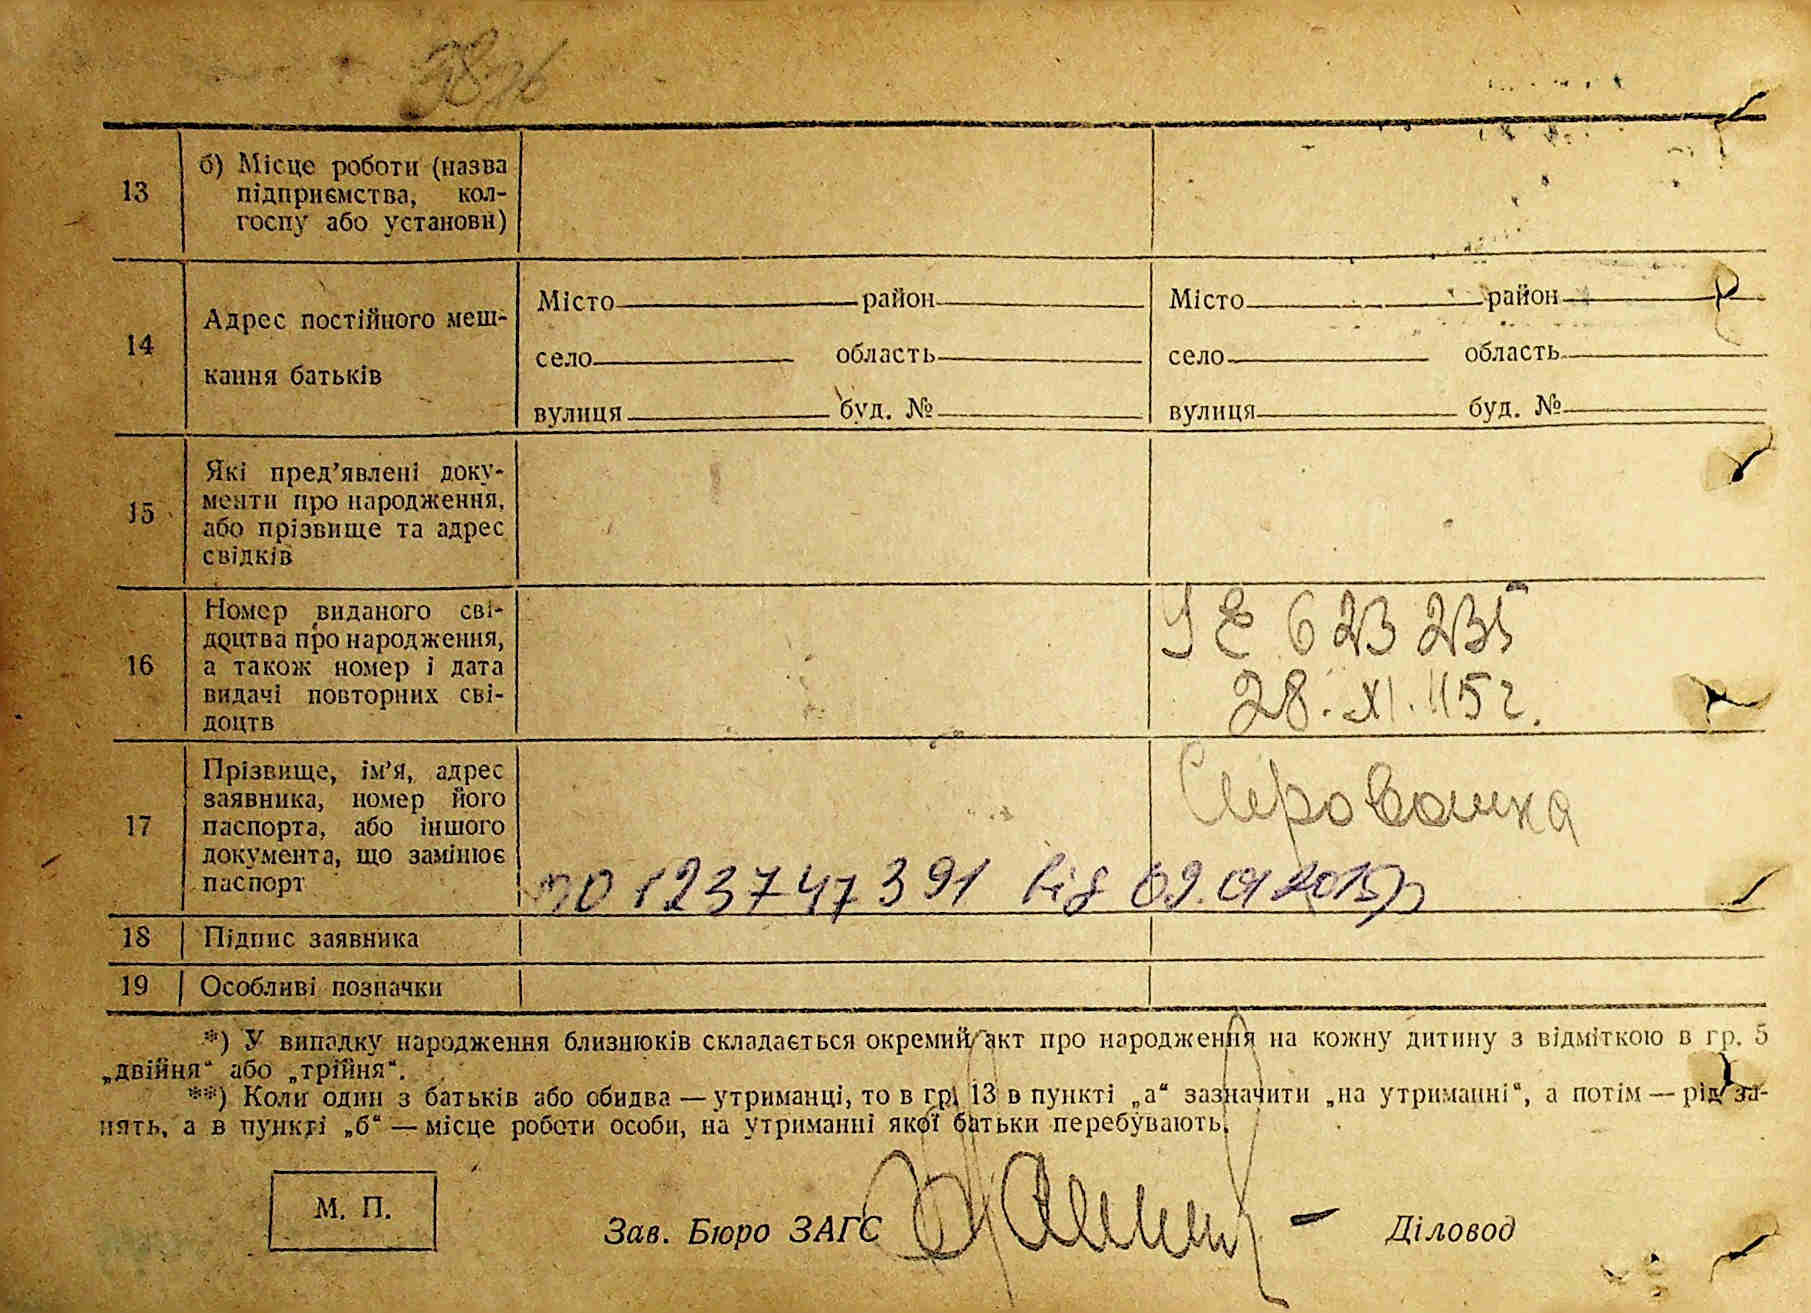 13
б) Місце роботи (назва
підприємства, кол-
госпу або установи)
14
Адрес постійного меш-
кання батьків
Місто район
село область
вулиця буд. №
Місто район
село область
вулиця буд. №
15
Які пред'явлені доку-
менти про народження,
або прізвище та адрес
свідків
16
Номер виданого сві-
доцтва про народження,
а також номер і дата
видачі повторних сві-
доцтв
ІЕ 623235
28. XI.
17
Прізвище, ім'я, адрес
заявника, номер його
паспорта, або іншого
документа, що замінює
паспорт
від 09.01 2015р
18 Підпис заявника
19 Особливі позначки
*) У випадку народження близнюків складається окремий акт про народження на кожну дитину з відміткою в гр. 5
„двійня“ або „трійня“.
**) Коли один з батьків або обидва — утриманці, то в гр. 13 в пункті „а“ зазначити „на утриманні“, а потім — рід за-
нять, а в пункті „б“ — місце роботи особи, на утриманні якої батьки перебувають.
М. П.
Зав. Бюро ЗАГС Діловод